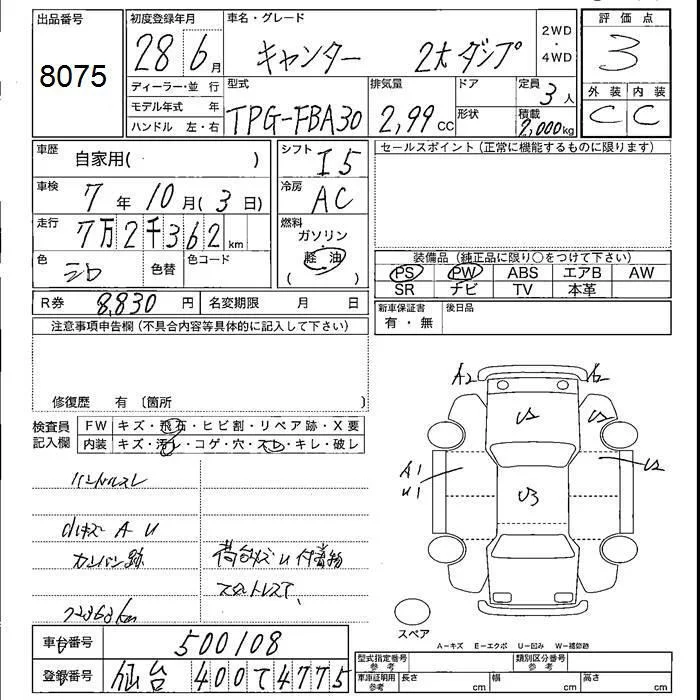 出品番号
8075
初度登録年月
28 6月
車名・グレード
キャンター 2t ダンプ
2WD
・
4WD
評価点
3
外装 内装
C C
ディーラー・並行
モデル年式 年
ハンドル 左・右
型式
TPG-FBA30
排気量
2,99cc
ドア
形状
定員
3人
積載
2,000kg
車歴
自家用( )
シフト
I5
車検
7年10月(3日)
冷房
AC
走行
7万2千362km
燃料
ガソリン
軽油
( )
色
シロ
色替
色コード
R券
8,830円
名変期限 月 日
セールスポイント(正常に機能するものに限ります)
装備品(純正品に限り○をつけて下さい)
PS PW ABS エアB AW
SR ナビ TV 本革
新車保証書
有・無
後日品
注意事項申告欄(不具合内容等具体的に記入して下さい)
修復歴 有 〔箇所 〕
検査員
記入欄
FW キズ・飛石・ヒビ割・リペア跡・X要
内装 キズ・汚れ・コゲ・穴・スレ・キレ・破レ
ハンドルスレ
小キズ A U
カンバン跡
荷台サビ U 付着物
72362km
A2 A2
U2 U2
A1
U1
U2
U3
スペア
A-キズ E-エクボ U-凹み W-補修跡
車台番号
500108
登録番号
仙台 400 て 4775
型式指定番号
参考
類別区分番号
参考
車庫証明用
参考
長さ cm 幅 cm 高さ cm